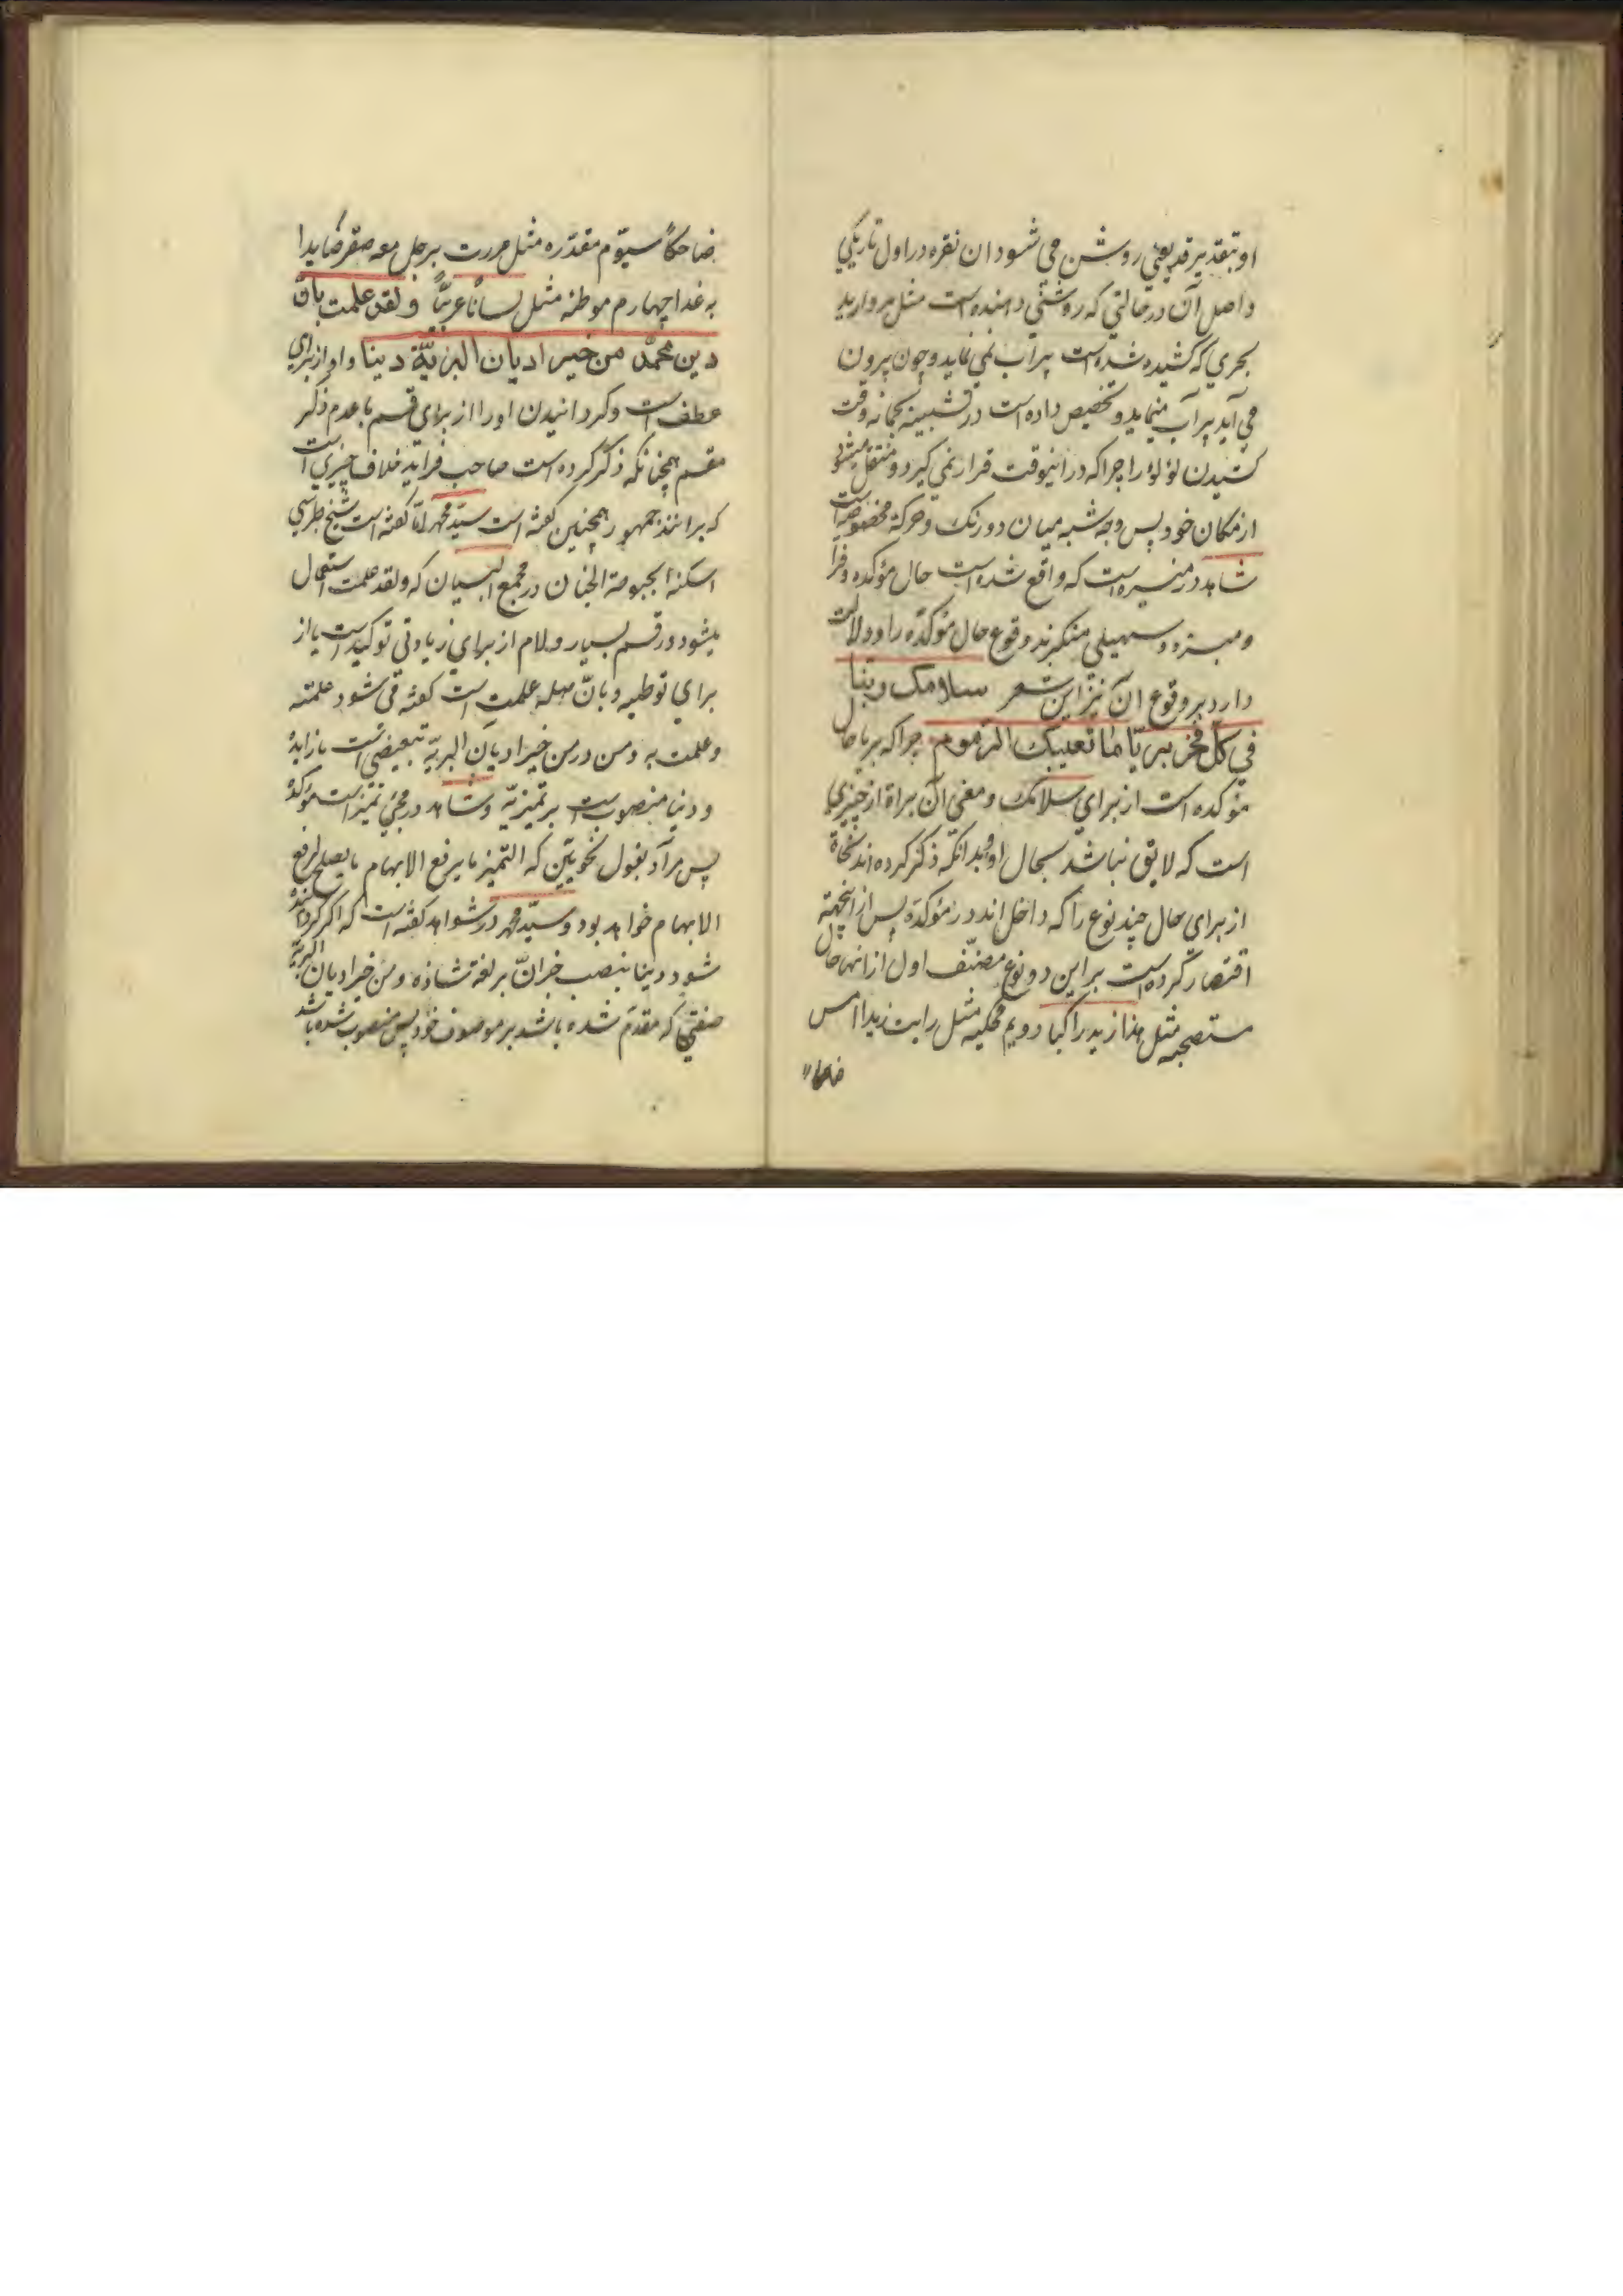 او بتقدیر قد یعنی روشن می شود ان نقره در اول تاریکی
واصل آن در حالتی که روشنی دهنده است مثل مروارید
بحری که کشیده شده است پرآب نمی نماید و چون بیرون
می آید پرآب مینماید و تخصیص داده است در تشبیه بجمانه وقت
کشیدن لؤلؤ را چرا که در اینوقت قرار نمی کیرد و منتقل میشود
از مکان خود پس وجه شبه میان دو رنک و حرکة مخصوصه است
شاهد در منیره است که واقع شده است حال مؤکده و فرا
و مبرد و سهیلی منکرند وقوع حال مؤکده را و دلالت
دارد بر وقوع ان نیز این شعر سلامک ربنا
فی کل فجر بریا ما تعیبک الذموم چرا که بریا حال
مؤکده است از برای سلامک و معنی آن براة از چیزی
است که لایق نباشد بحال او و بدانکه ذکر کرده اند نحاة
از برای حال چند نوع را که داخل اند در مؤکده پس از اینجهته
اقتصار کرده است بر این دو نوع مصنف اول از انها حال
مستصحبه مثل هذا زید راکبا دویم محکیه مثل رایت زیدا امس
ضاحکا
ضاحکا سیوم مقدره مثل مررت برجل معه صقر صایدا
به غدا چهارم موطئه مثل لسانا عربیا و لقد علمت بان
دین محمد من خیر ادیان البریة دینا واو از برای
عطف است و کردانیدن او را از برای قسم با عدم ذکر
مقسم همچنانکه ذکر کرده است صاحب فراید خلاف چیزی است
که برانند جمهور همچنین کفته است سید مهر اما کفته است شیخ طبرسی
اسکنه بحبوحة الجنان در مجمع البیان که ولقد علمت استعمال
میشود در قسم بسیار و لام از برای زیادتی توکید است یا از
برای توطیه و بان صله علمت است کفته می شود علمته
و علمت به و من در من خیر ادیان البریة تبعیضی است یا زایده
و دینا منصوب است بر تمیزیة و شاهد در مجیئ تمیز است مؤکد
پس مراد بقول نحویین که التمیز ما یرفع الابهام ما یصلح لرفع
الابهام خواهد بود و سید مهر در شواهد کفته است که اکر کردانیده
شود دینا بنصب خبر ان بر لغة شاذه و من خیر ادیان البریة
صفتی که مقدم شده باشد بر موصوف خود پس منصوب شده باشد